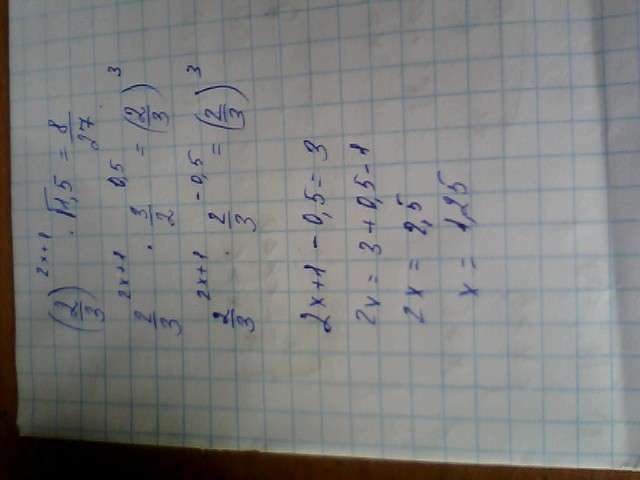 (2/3)^2x+1 · √1,5 = 8/27
2/3^2x+1 · 3/2^0,5 = (2/3)^3
2/3^2x+1 · 2/3^-0,5 = (2/3)^3
2x+1-0,5=3
2x=3+0,5-1
2x=2,5
x=1,25